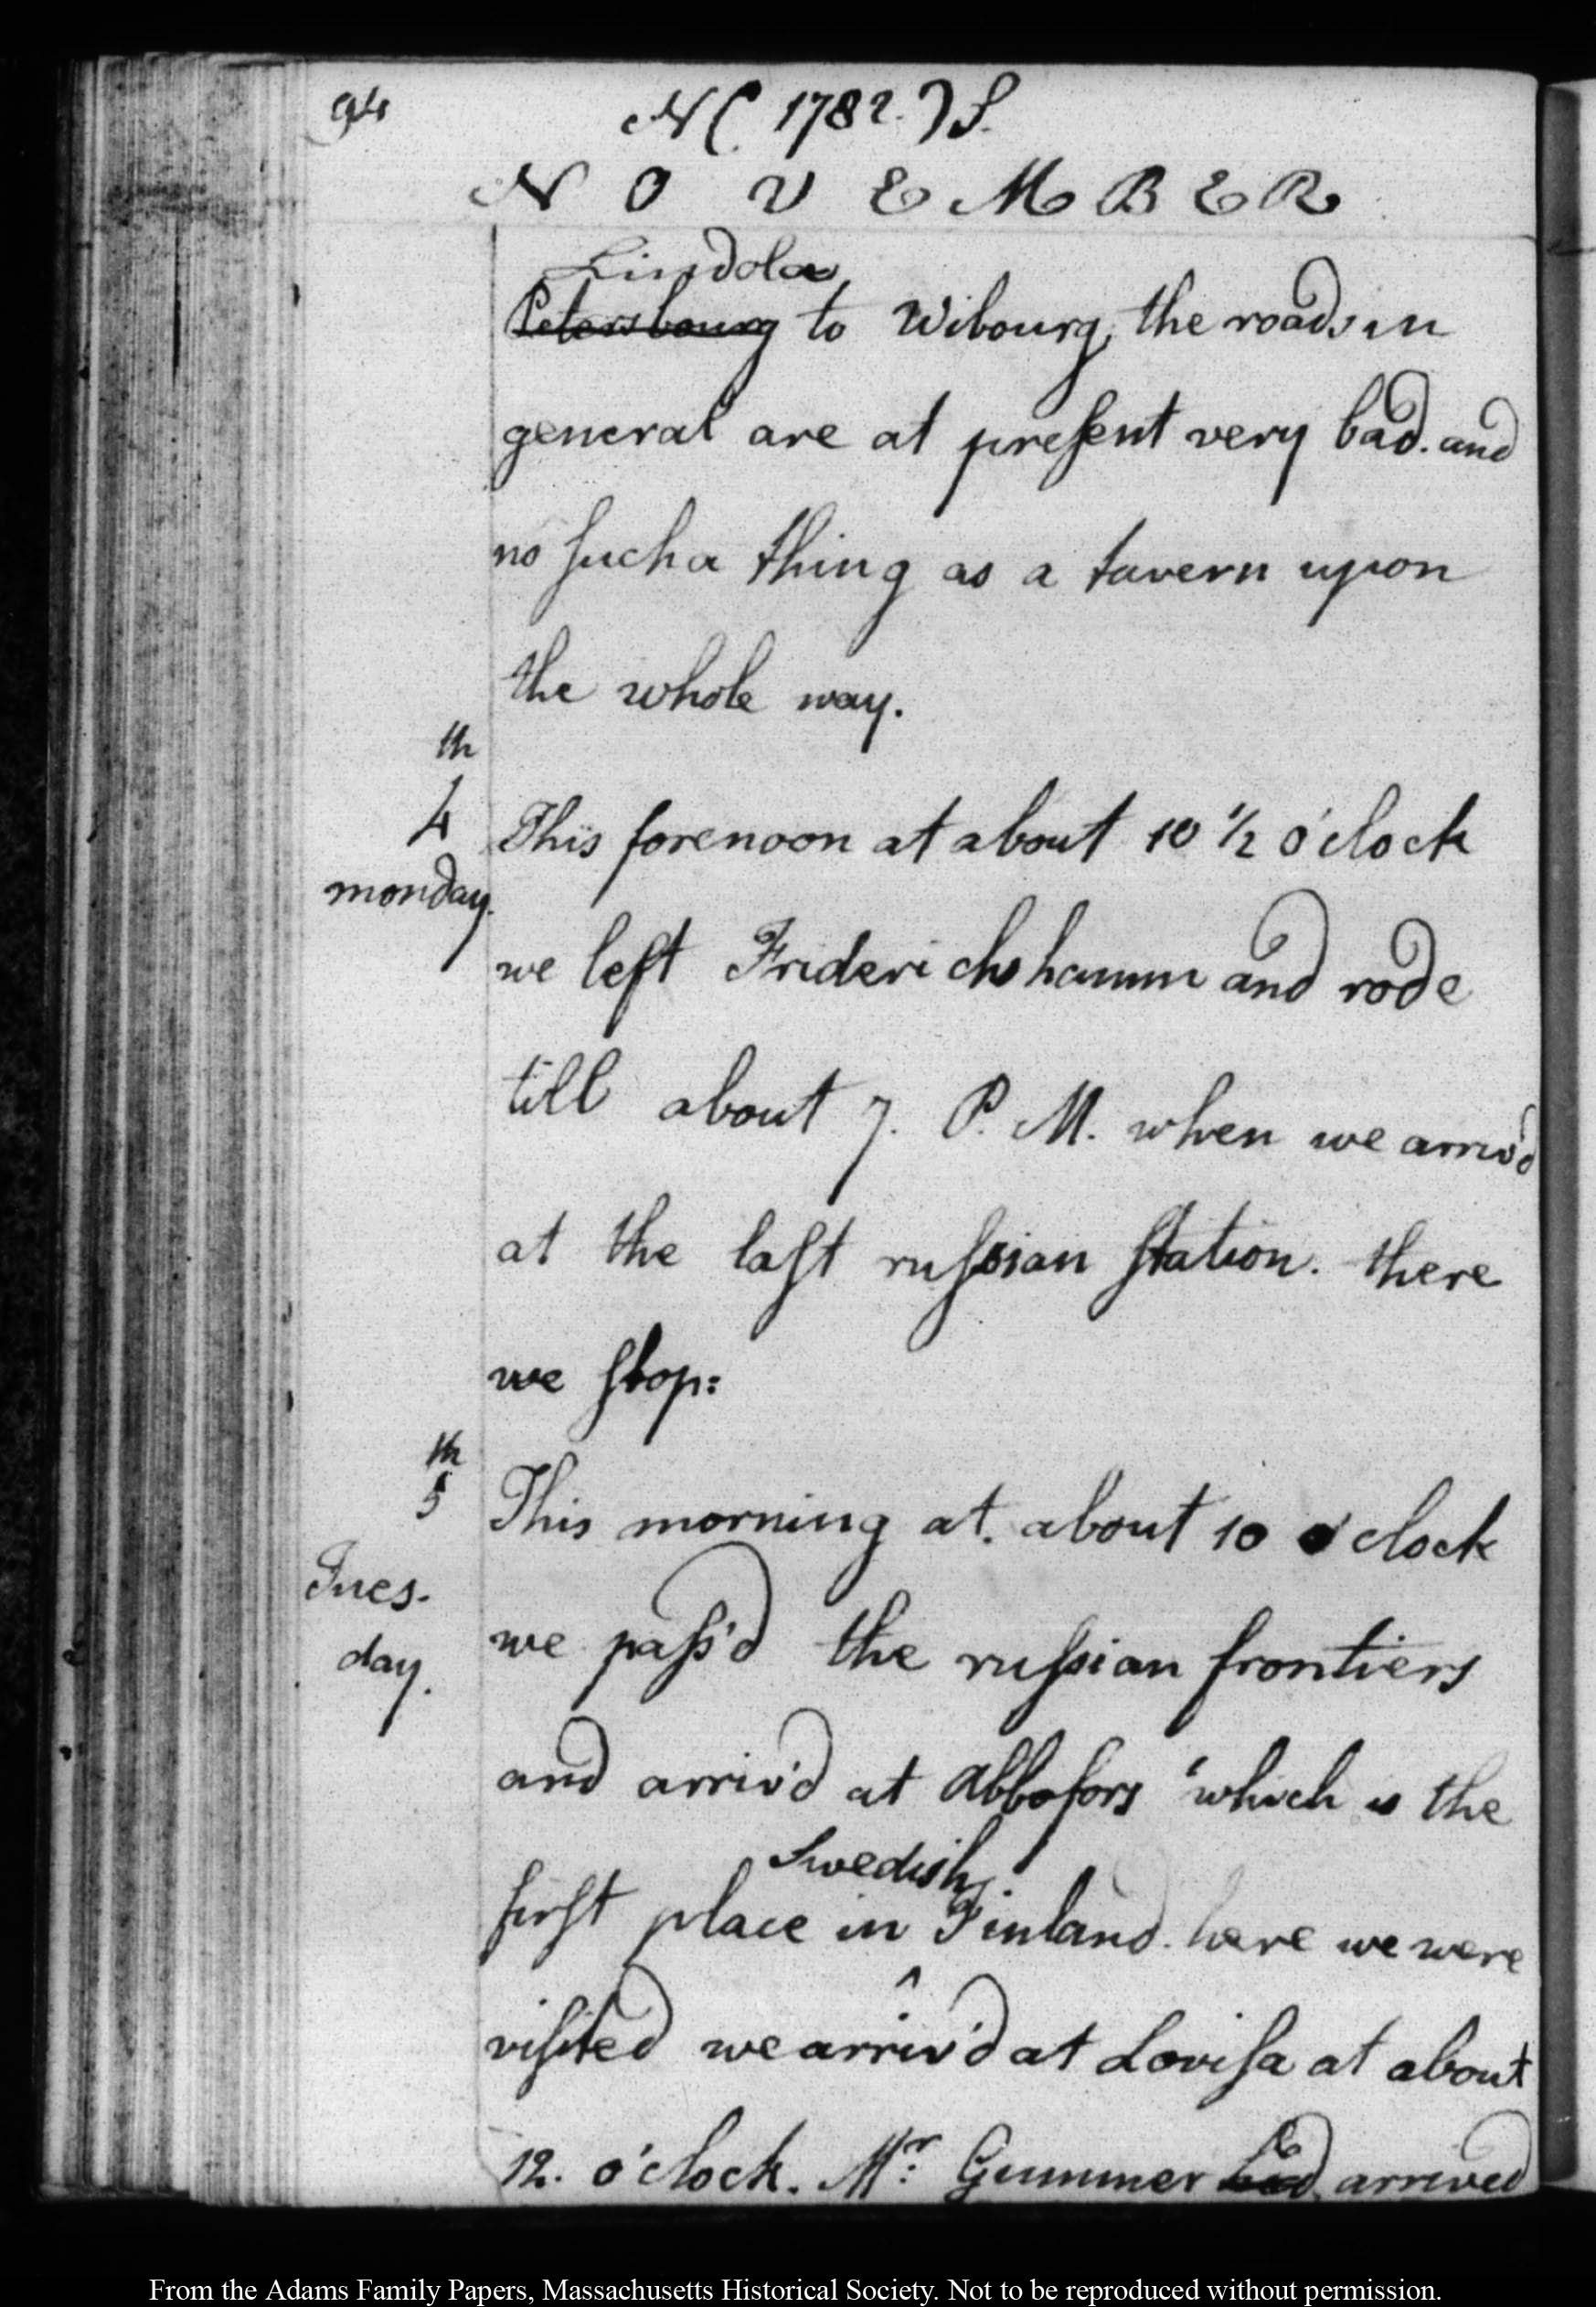 94
N( 1782. )S.
NOVEMBER
Lindola
Petersbourg to Wibourg, the roads in
general are at present very bad. and
no such a thing as a tavern upon
the whole way.
th
4
monday.
This forenoon at about 10 1/2 o'clock
we left Friderichshamm and rode
till about 7. P. M. when we arriv'd
at the last russian station. there
we stop:
th
5
Tues-
day.
This morning at. about 10 o'clock
we pass'd the russian frontiers
and arriv'd at Abbofors which is the
Swedish
first place in ^ Finland. here we were
visited we arriv'd at Lovisa at about
12. o'clock. Mr: Gummer had arrived
From the Adams Family Papers, Massachusetts Historical Society. Not to be reproduced without permission.